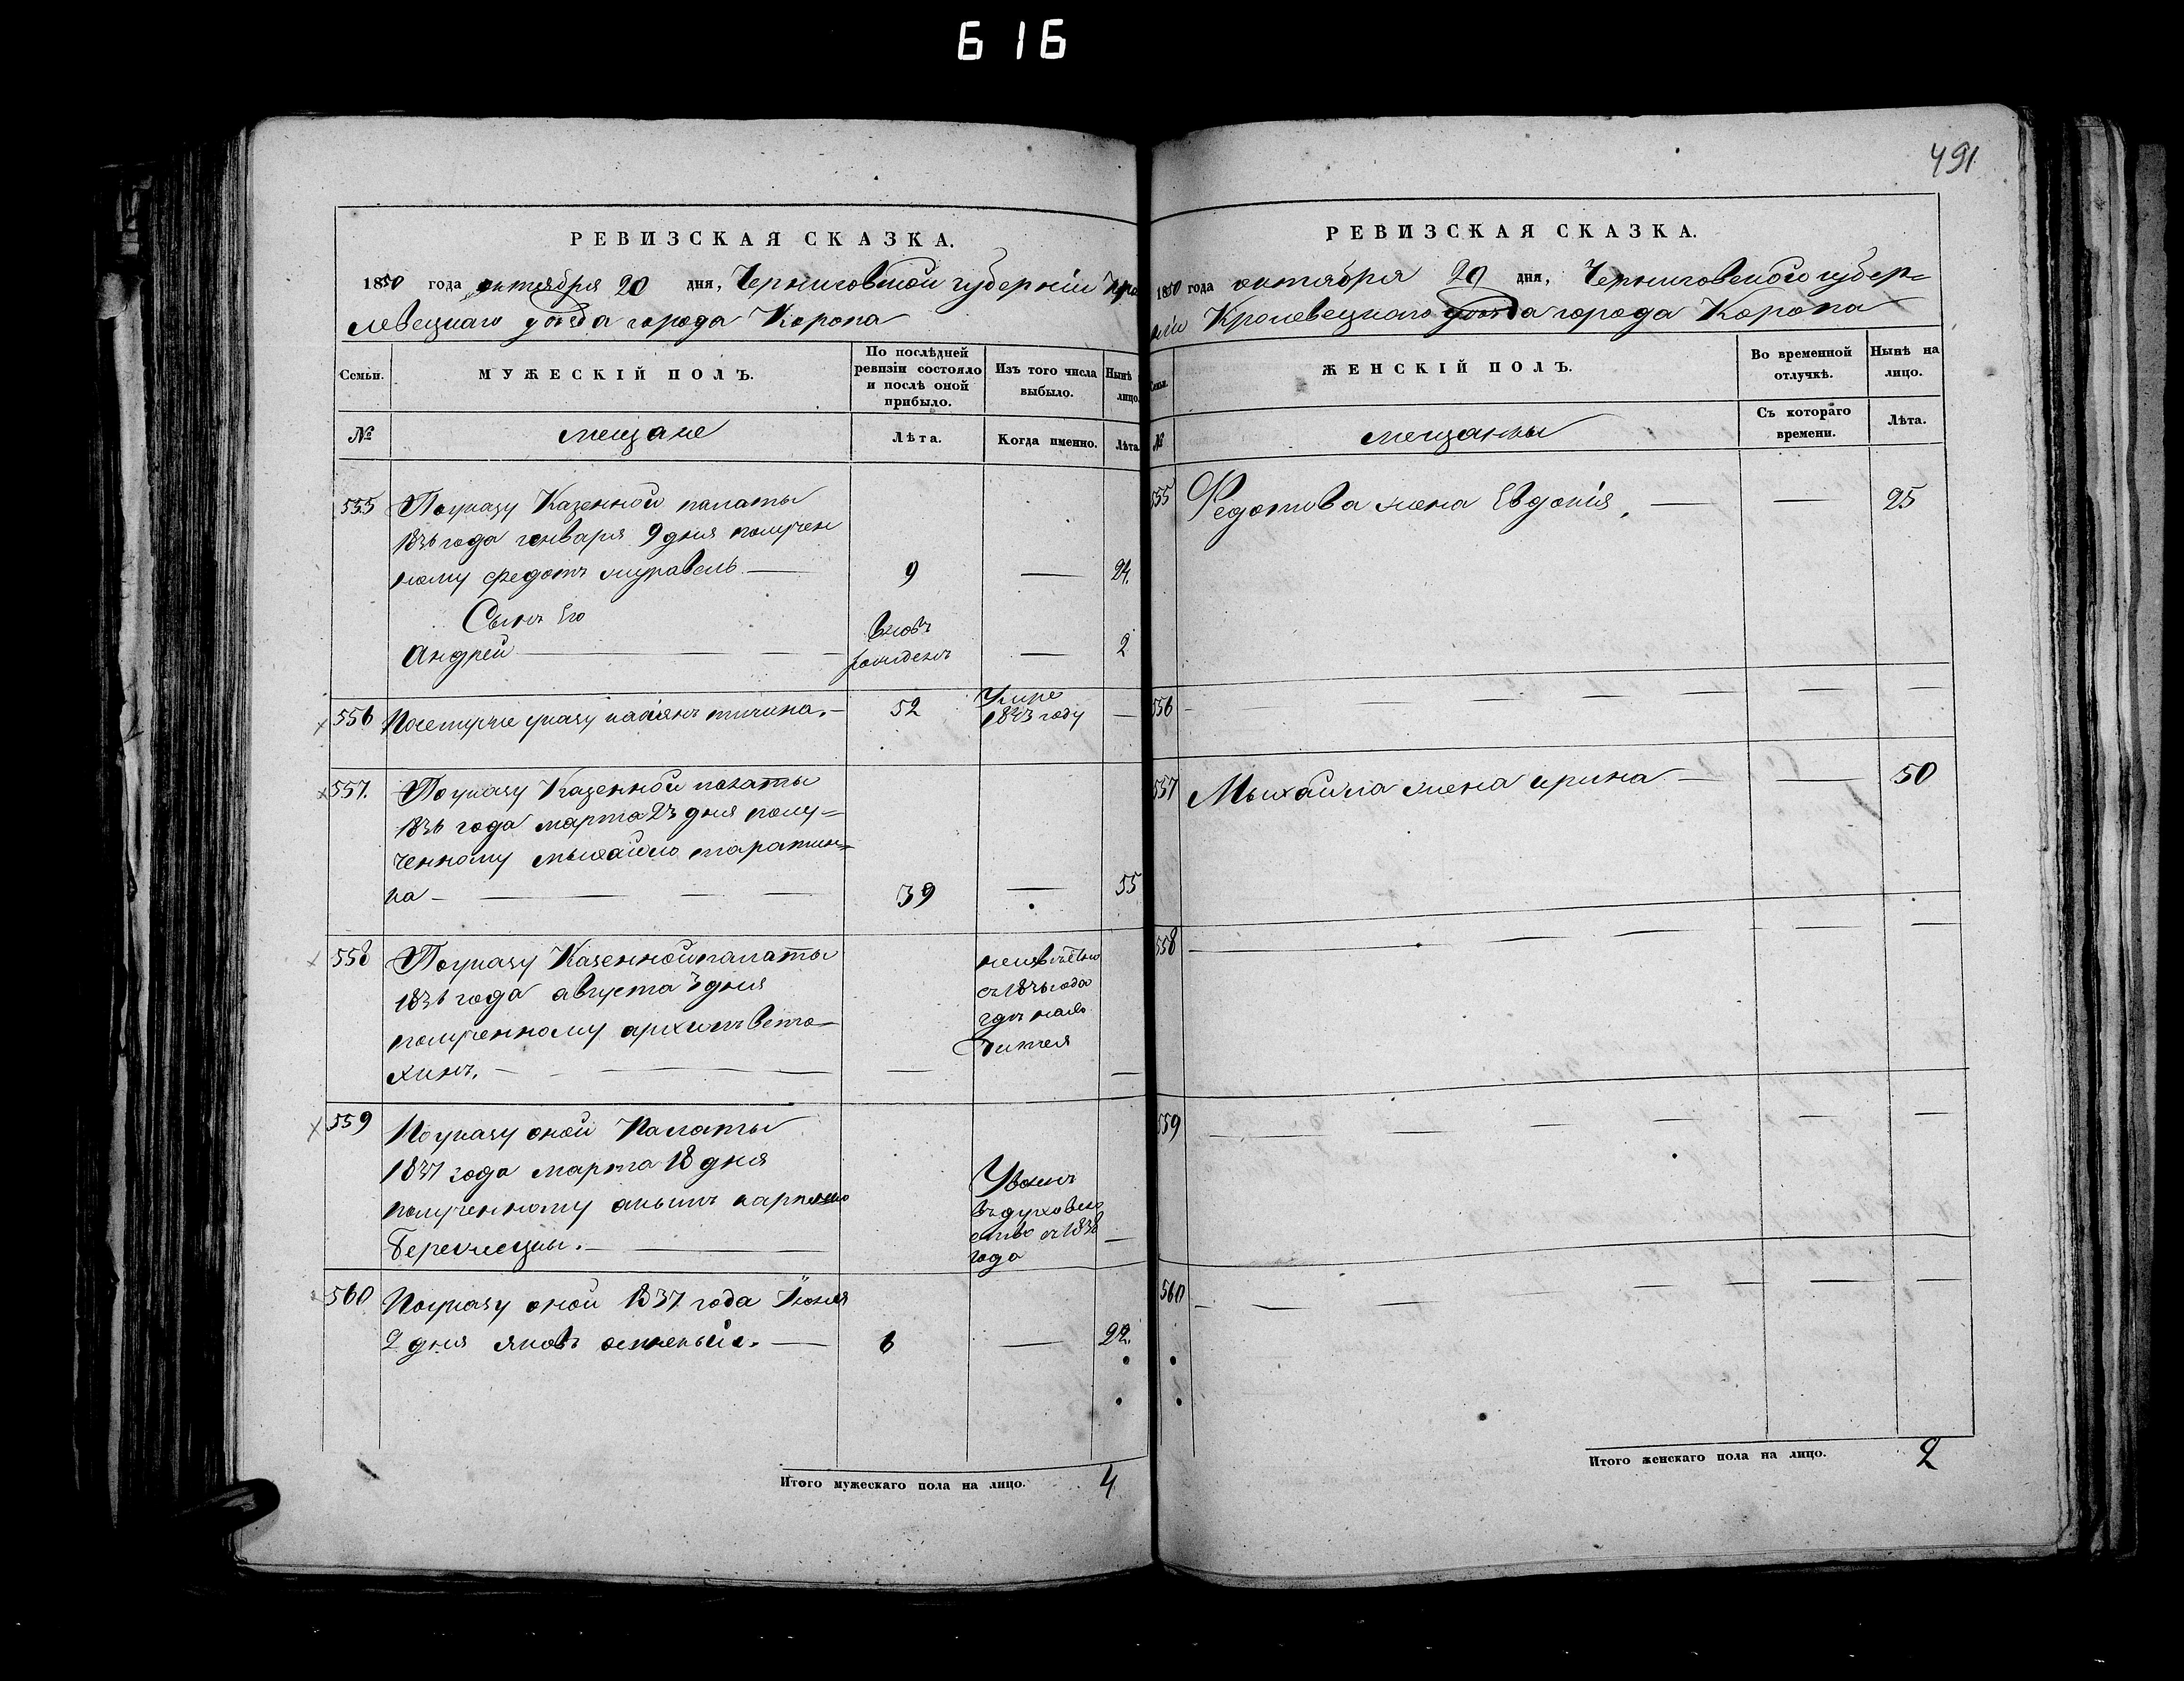 616
491
РЕВИЗСКАЯ СКАЗКА.
1850 года октября 20 дня, Черниговской губерніи Кро
левецкаго уѣзда города Коропа
Семьи.
МУЖЕСКІЙ ПОЛЪ.
По послѣдней ревизіи состояло и послѣ оной прибыло.
Изъ того числа выбыло.
Нынѣ лицо.
№
мещане
Лѣта.
Когда именно.
Лѣта
555 По указу Казенной палаты
1836 года генваря 9 дня получен
ному Федотъ муравель — 9 — 24.
Сынъ Его
Андрей — вновь рожденъ — 2
556 По сему же указу тичина. — 52 Умре 1843 году —
557. По указу Казенной палаты
1836 года марта 23 дня полу=
ченному мыхайло таратин=
ка — 39 — 55
558 По указу Казенной палаты
1836 года августа 3 дня
полученному архипъ вето—
хинъ. —
неизвѣстно
съ 1836 года
559 По указу оной Палаты
1837 года марта 18 дня
полученному
года
560 По указу оной 1837 года Іюня
2 дня яковъ — 6 — 22.
Итого мужескаго пола на лицо. 4
РЕВИЗСКАЯ СКАЗКА.
1850 года октября 20 дня, Черниговской губер=
ніи Кролевецкаго уѣзда города Коропа
Семьи.
ЖЕНСКІЙ ПОЛЪ.
Во временной отлучкѣ.
Нынѣ на лицо.
№
мещанки
Съ котораго времени.
Лѣта.
555 Федотова жена Евдокія, — — 25
556 —
557 Мыхайла жена ирина — — 50
558 —
559 —
560 —
Итого женскаго пола на лицо. 2